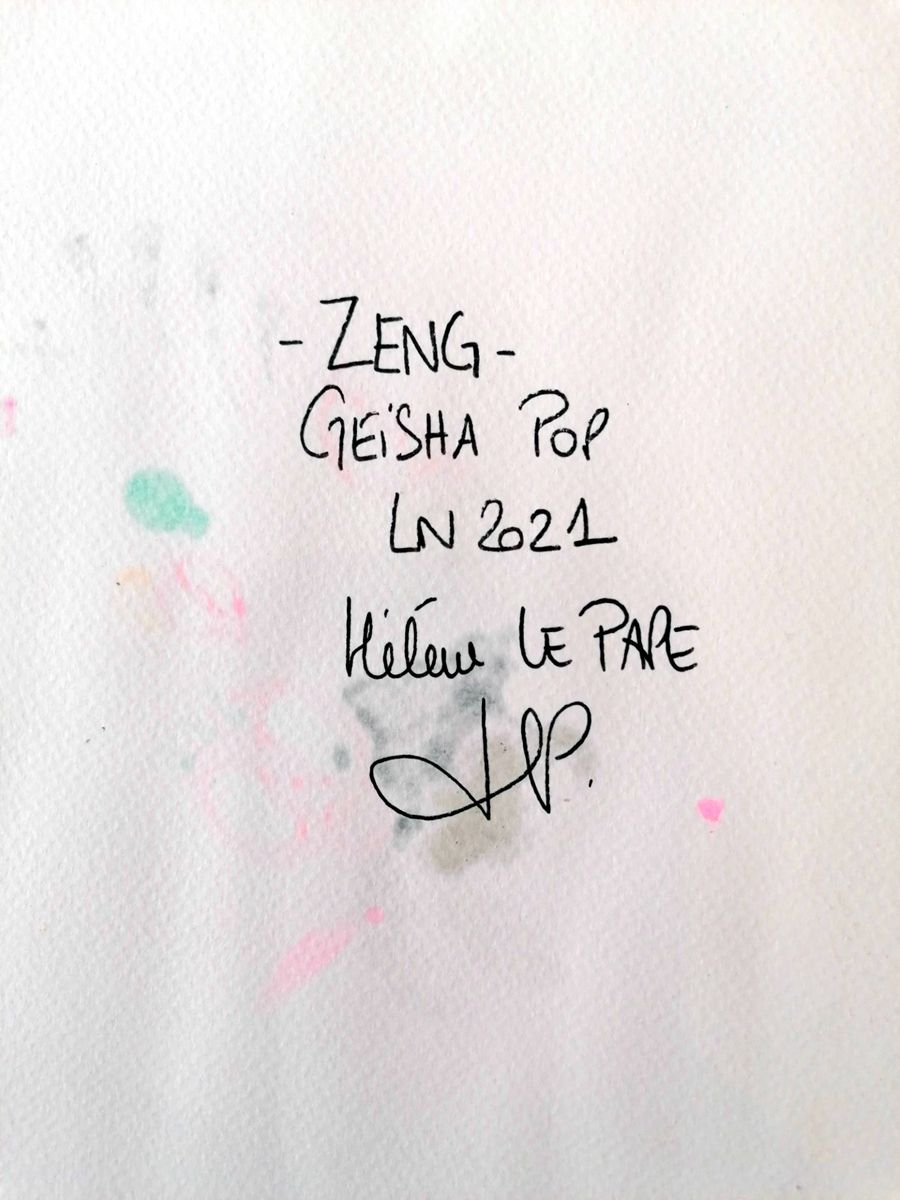 - ZENG -
GEiSHA POP
LN 2021
Hélène LE PAPE
HP.